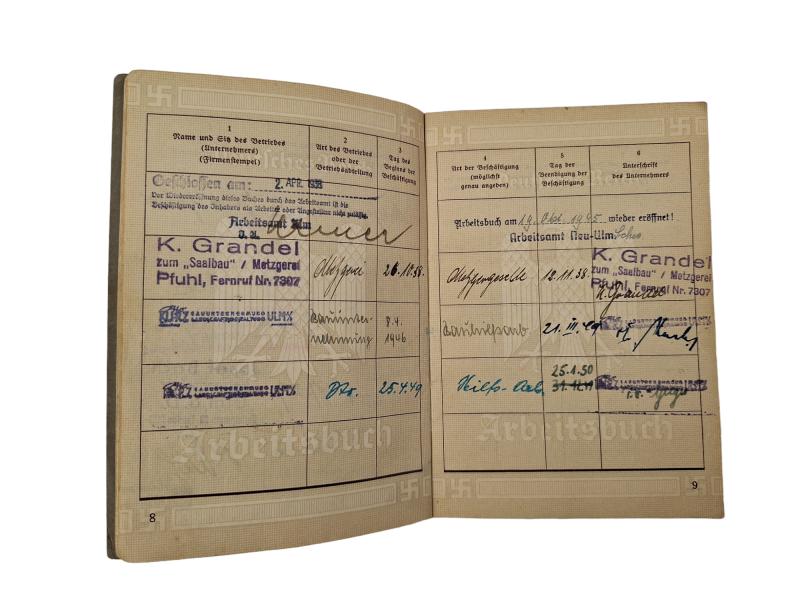 1
Name und Sitz des Betriebes
(Unternehmers)
(Firmenstempel)
2
Art des Betriebes
oder der
Betriebsabteilung
3
Tag des
Beginns der
Beschäftigung
Geschlossen am: 2. APR. 1938
Der Wiedereröffnung dieses Buches durch das Arbeitsamt ist die
Beschäftigung des Inhabers als Arbeiter oder Angestellter nicht zulässig.
Arbeitsamt Ulm
K. Grandel
zum „Saalbau" / Metzgerei
Pfuhl, Fernruf Nr. 7307
Metzgerei
26.10.38.
KURZ BAUUNTERNEHMUNG ULM
LANDSCHAFTSGESTALTUNG
Bauunter-
nehmung
8.4.
1946
KURZ BAUUNTERNEHMUNG ULM
LANDSCHAFTSGESTALTUNG
Dto.
25.4.49
Arbeitsbuch
8
4
Art der Beschäftigung
(möglichst
genau angeben)
5
Tag der
Beendigung der
Beschäftigung
6
Unterschrift
des Unternehmers
Arbeitsbuch am 19. Okt. 1945. wieder eröffnet!
Arbeitsamt Neu-Ulm
Metzgergeselle
12.11.38.
K. Grandel
zum „Saalbau" / Metzgerei
Pfuhl, Fernruf Nr. 7307
K. Grandel
Bauhilfsarb
21. III. 49
Hilfs-Arb.
25.1.50
31.12.49
BAUUNTERNEHMUNG
LANDSCHAFTSGESTALTUNG
Arbeitsbuch
9